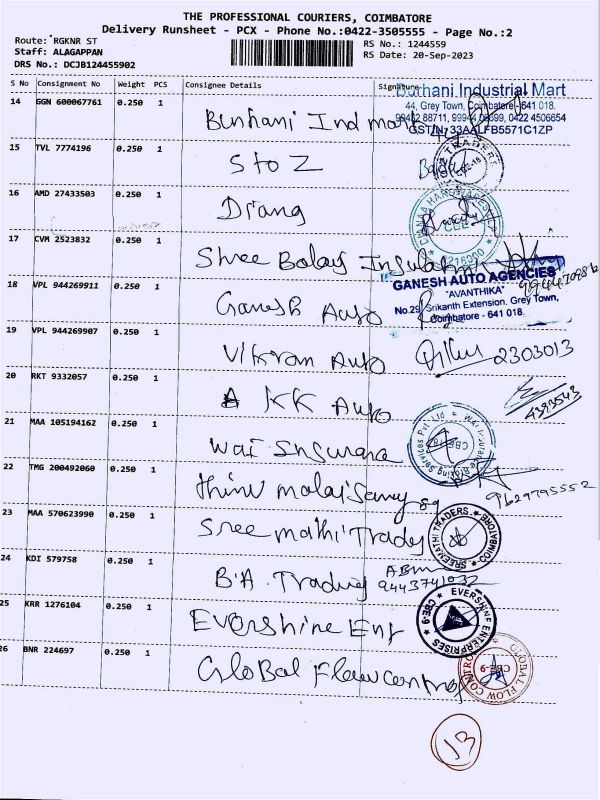 THE PROFESSIONAL COURIERS, COIMBATORE
Delivery Runsheet - PCX - Phone No.:0422-3505555 - Page No.:2
Route: RGKNR ST
RS No.: 1244559
Staff: ALAGAPPAN
RS Date: 20-Sep-2023
DRS No.: DCJB124455902
S No Consignment No Weight PCS Consignee Details Signature
Burhani Industrial Mart
44, Grey Town, Coimbatore - 641 018.
0422 4506654
14 GGN 600067761 0.250 1 Burhani Ind mark
15 TVL 7774196 0.250 1 S to Z
16 AMD 27433503 0.250 1
17 CVM 2523832 0.250 1 Shree Balaji
GANESH AUTO AGENCIES
"AVANTHIKA"
No.29, Srikanth Extension, Grey Town,
Coimbatore - 641 018.
18 VPL 944269911 0.250 1 Ganesh Auto
19 VPL 944269907 0.250 1 Vikram Auto 2303013
20 RKT 9332057 0.250 1 KK Auto 4393543
21 MAA 105194162 0.250 1 Wai Insurance
22 TMG 200492060 0.250 1 9629795552
23 MAA 570623990 0.250 1 Sree mathi Trady
SREEMATHI TRADERS. COIMBATORE
24 KDI 579758 0.250 1 B.A. Trading 9443741032
25 KRR 1276104 0.250 1 Evershine Ent
EVERSHINE ENTERPRISES CBE-9
26 BNR 224697 0.250 1 Global Flow control
GLOBAL FLOW CONTROL CBE-9
13